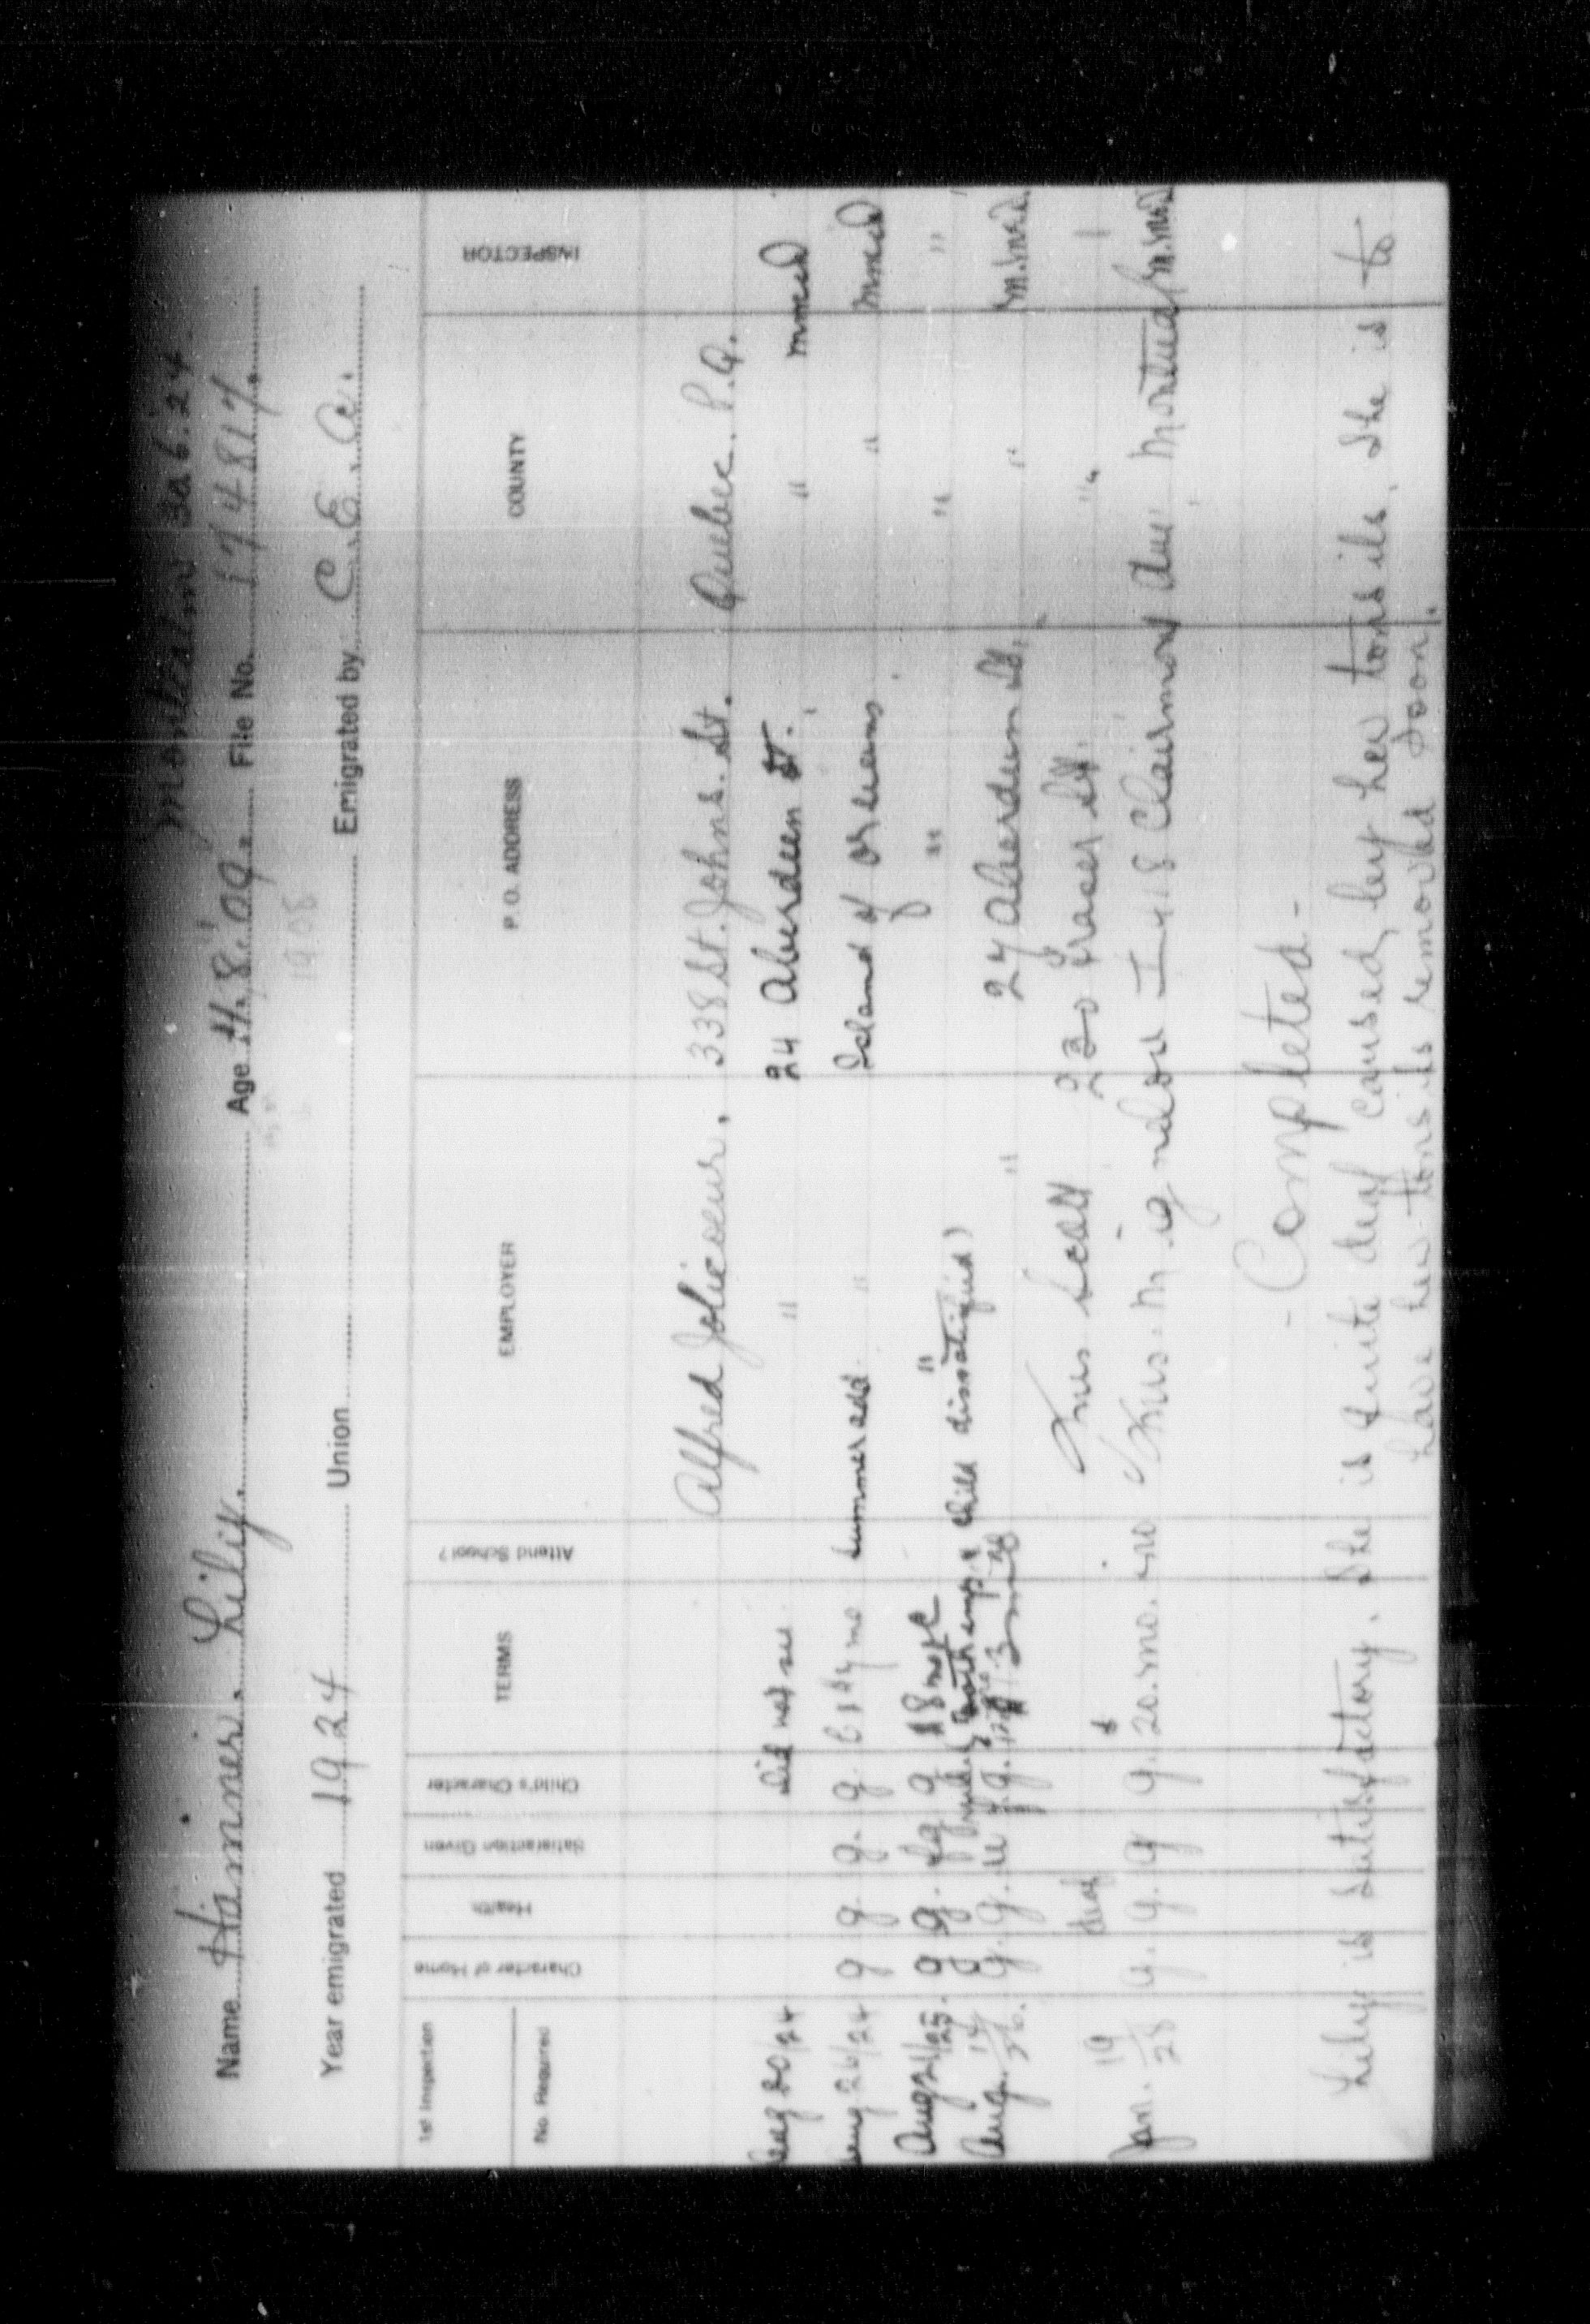 Montcalm 30 6.24
Name Hamner. Lily. Age 11.8.'09. File No. 174817.
1908
Year emigrated 1924 Union Emigrated by C. E. A.
1st Inspection
No. Required
Character of Home
Health
Satisfaction Given
Child's Character
TERMS
Attend School?
EMPLOYER
P. O. ADDRESS
COUNTY
INSPECTOR
Alfred Jolicoeur. 338 St. Johns. St. Quebec. P.Q.
Aug 20/24 Did not see " 24 Aberdeen St. "
Aug 26/24 g g. g. g. summer add. " Island of Orleans "
Aug 21/25. g g. g 18 " " " "
child dissatisfied)
Aug. 14/26. g. g. g. " 24 Aberdeen St. " M.M.R.D.
deaf Mrs Scott 230 Fraser St. "
Jan. 19/28 g. g. g g. 20. mo. Mrs. M. 418 Clairmont Ave Montreal
- Completed -
Lily is satisfactory. She is quite deaf caused by her tonsils. She is to
have her tonsils removed soon.